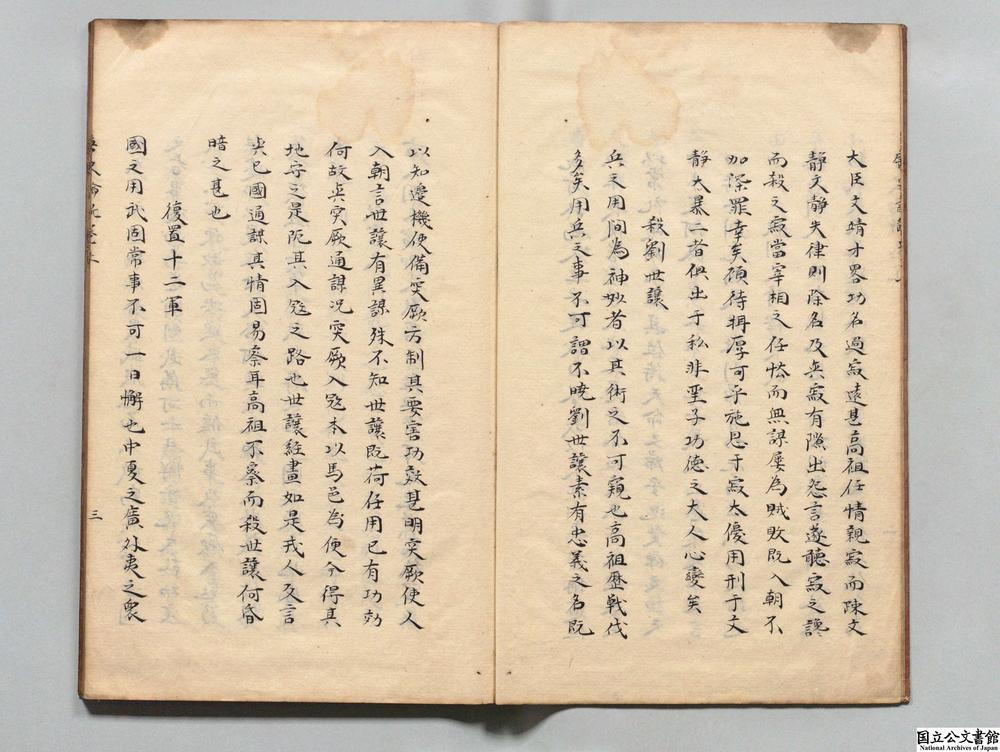 大臣文靖才畧功名過寂遠甚高祖任情親寂而踈文
靜文靜失律則除名及與寂有隙出怨言遂聽寂之讒
而殺之寂當宰相之任恠而無謀屢為賊敗既入朝不
加深罪幸矣碩待稱厚可乎施恩于寂太優用刑于文
靜太暴二者俱出于私非聖子功德之大人心變矣
殺劉世讓
兵之用間為神妙者以其術之不可窺也高祖歷戰伐
多矣用兵之事不可謂不曉劉世讓素有忠義之名既
以知邊機使備突厥方制其要害功效甚明突厥使人
入朝言世讓有異謀殊不知世讓既荷任用已有功効
何故與突厥通謀况突厥入冦本以馬邑為便今得其
地守之是阨其入冦之路也世讓經畫如是戎人反言
與已國通謀其情固易察耳高祖不察而殺世讓何昏
暗之甚也
復置十二軍
國之用武固常事不可一日懈也中夏之廣外夷之衆
三
国立公文書館
National Archives of Japan